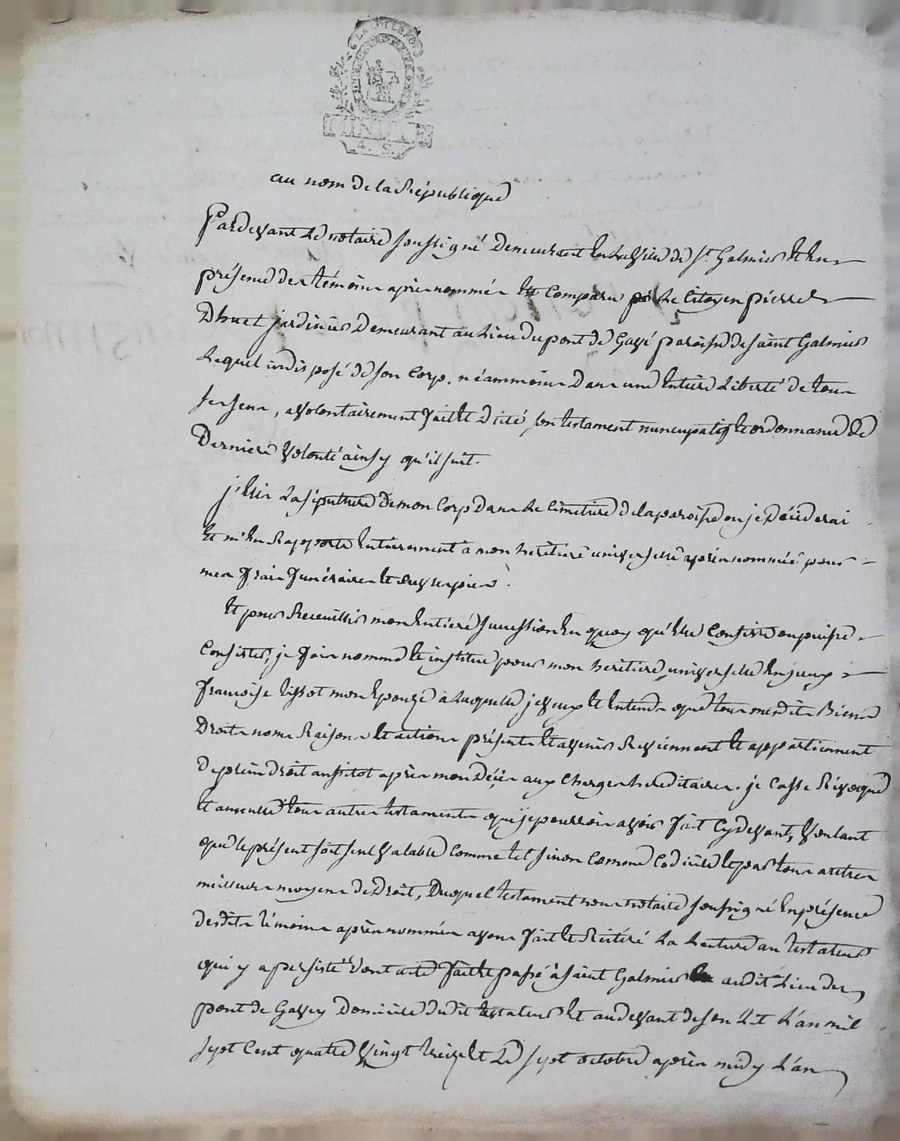 LA LOI LE ROI
4. S.
au nom de la République
Pardevant Le notaire soussigné Demeurant En La Ville de St Galmier Et En
présence des témoins après nommés Est Comparu Le Citoyen pierre
Dhuet jardinier Demeurant au Lieu du pont de Gavé paroisse de saint Galmier
Lequel indisposé de son Corp. néammoins Dans une Entière Liberté de tous
ses sens, a volontairement fait Et Dicté son testament nuncupatif Et ordonnance De
Dernière Volonté ainsy qu'il suit.
j'Elis La sépulture De mon Corp Dans Le Cimetière De la paroisse ou je Déciderai
Et m'En Rapporte Entièrement a mon héritière universelle après nommée pour
mes frais funéraires Et œuvres pies.
Et pour Recueillir mon Entière succession En quoy qu'Elle Consiste ou puisse
Consister, je fais nomme Et institue pour mon héritière universelle
francoise tissot mon Epouze à Laquelle je veux Et Entends que tous mesdits Biens
Droits noms Raisons Et actions présents Et avenir Reviennent Et appartiennent
De plein Droit aussitot après mon Décès aux Charges héréditaires. je Casse Révoque
Et annulle tous autres testaments que je pourrois avoir fait Cydevant, Voulant
que Le présent soit seul Valable Comme tel sinon Comme Codicile Et par tous autres
meilleurs moyens de Droit, Duquel testament nous notaire soussigné En présence
desdits témoins après nommés avons fait Et Réitéré La Lecture au testateur
qui y a persisté Dont acte fait Et passé à saint Galmier audit Lieu du
pont de Gavey Domicile Dudit testateur Et au devant de son Lit L'an mil
sept Cent quatre Vingt treize Et Le sept octobre après midy L'an